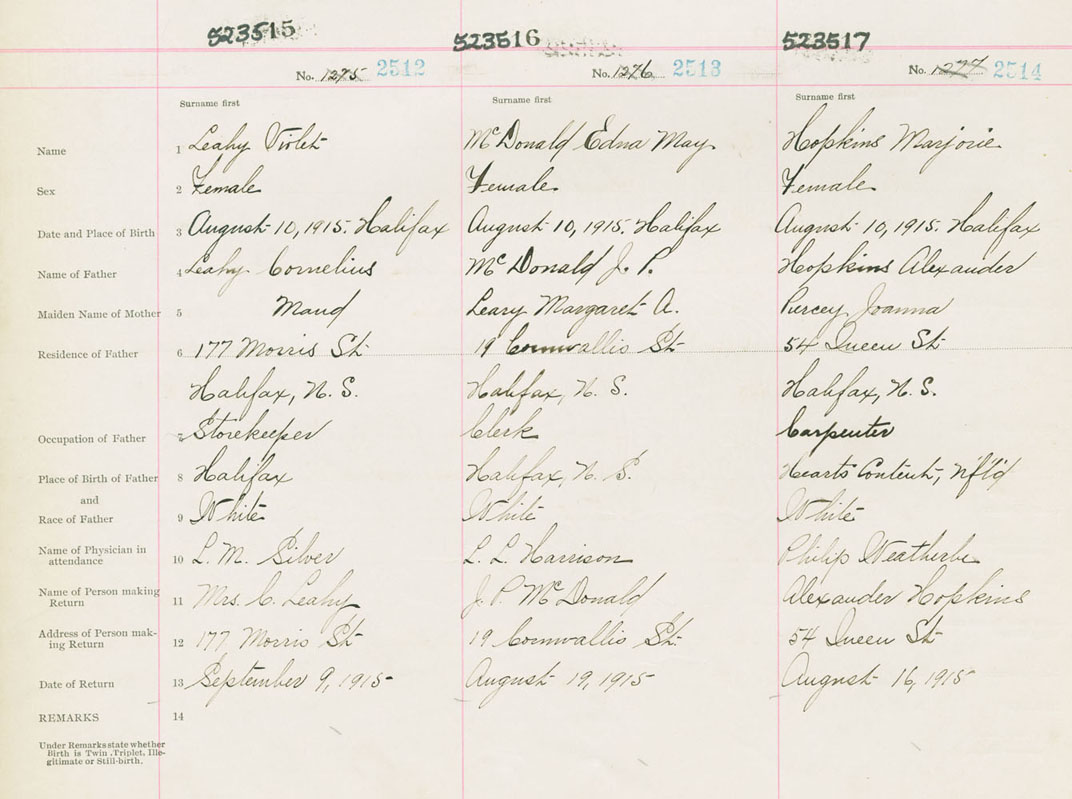 523515 523516 523517
No. 1275 2512 No. 1276 2513 No. 1277 2514
Surname first Surname first Surname first
Name 1 Leahy Violet McDonald Edna May Hopkins Marjorie
Sex 2 Female Female Female
Date and Place of Birth 3 August 10, 1915. Halifax August 10, 1915. Halifax August 10, 1915. Halifax
Name of Father 4 Leahy Cornelius McDonald J. P. Hopkins Alexander
Maiden Name of Mother 5 Maud Leary Margaret A. Percey Joanna
Residence of Father 6 177 Morris St. 19 Cornwallis St. 54 Queen St.
Halifax, N. S. Halifax, N. S. Halifax, N. S.
Occupation of Father 7 Storekeeper Clerk Carpenter
Place of Birth of Father 8 Halifax Halifax, N. S. Hearts Content, Nfld
and
Race of Father 9 White White White
Name of Physician in
attendance 10 L. M. Silver L. L. Harrison Philip Weatherbe
Name of Person making
Return 11 Mrs. C. Leahy J. P. McDonald Alexander Hopkins
Address of Person mak-
ing Return 12 177 Morris St. 19 Cornwallis St. 54 Queen St.
Date of Return 13 September 9, 1915 August 19, 1915 August 16, 1915
REMARKS 14
Under Remarks state whether
Birth is Twin, Triplet, Ille-
gitimate or Still-birth.